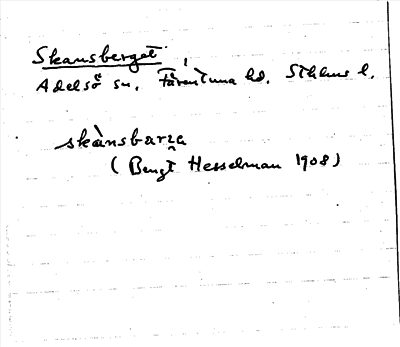 Skansberget
Adelsö sn. Färentuna hd. Sthlms l.
skànsbarɪ̯a
(Bengt Hesselman 1908)